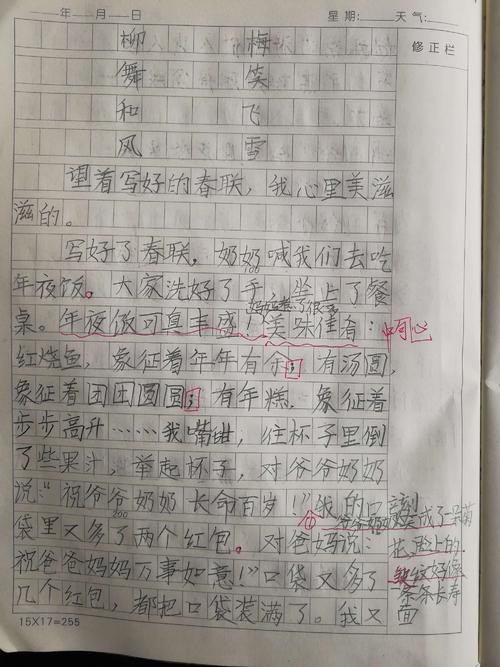 年 月 日 星期: 天气:
修正栏
柳 梅
舞 笑
和 飞
风 雪
望着写好的春联,我心里美滋
滋的。
写好了春联,奶奶喊我们去吃
年夜饭。大家洗好了手,坐上了餐
桌。年夜饭可真丰盛!美味佳肴:
红烧鱼,象征着年年有余;有汤圆,
象征着团团圆圆;有年糕,象征着
步步高升……我嘴甜,往杯子里倒
了些果汁,举起杯子,对爷爷奶奶
说:“祝爷爷奶奶长命百岁!”我的口
袋里又多了两个红包。对爸妈说:
祝爸爸妈妈万事如意!”口袋又多了
几个红包,都把口袋装满了。我又
爷爷奶奶笑成了一朵菊
花,脸上的
皱纹好像
一条条长寿
面
15X17=255